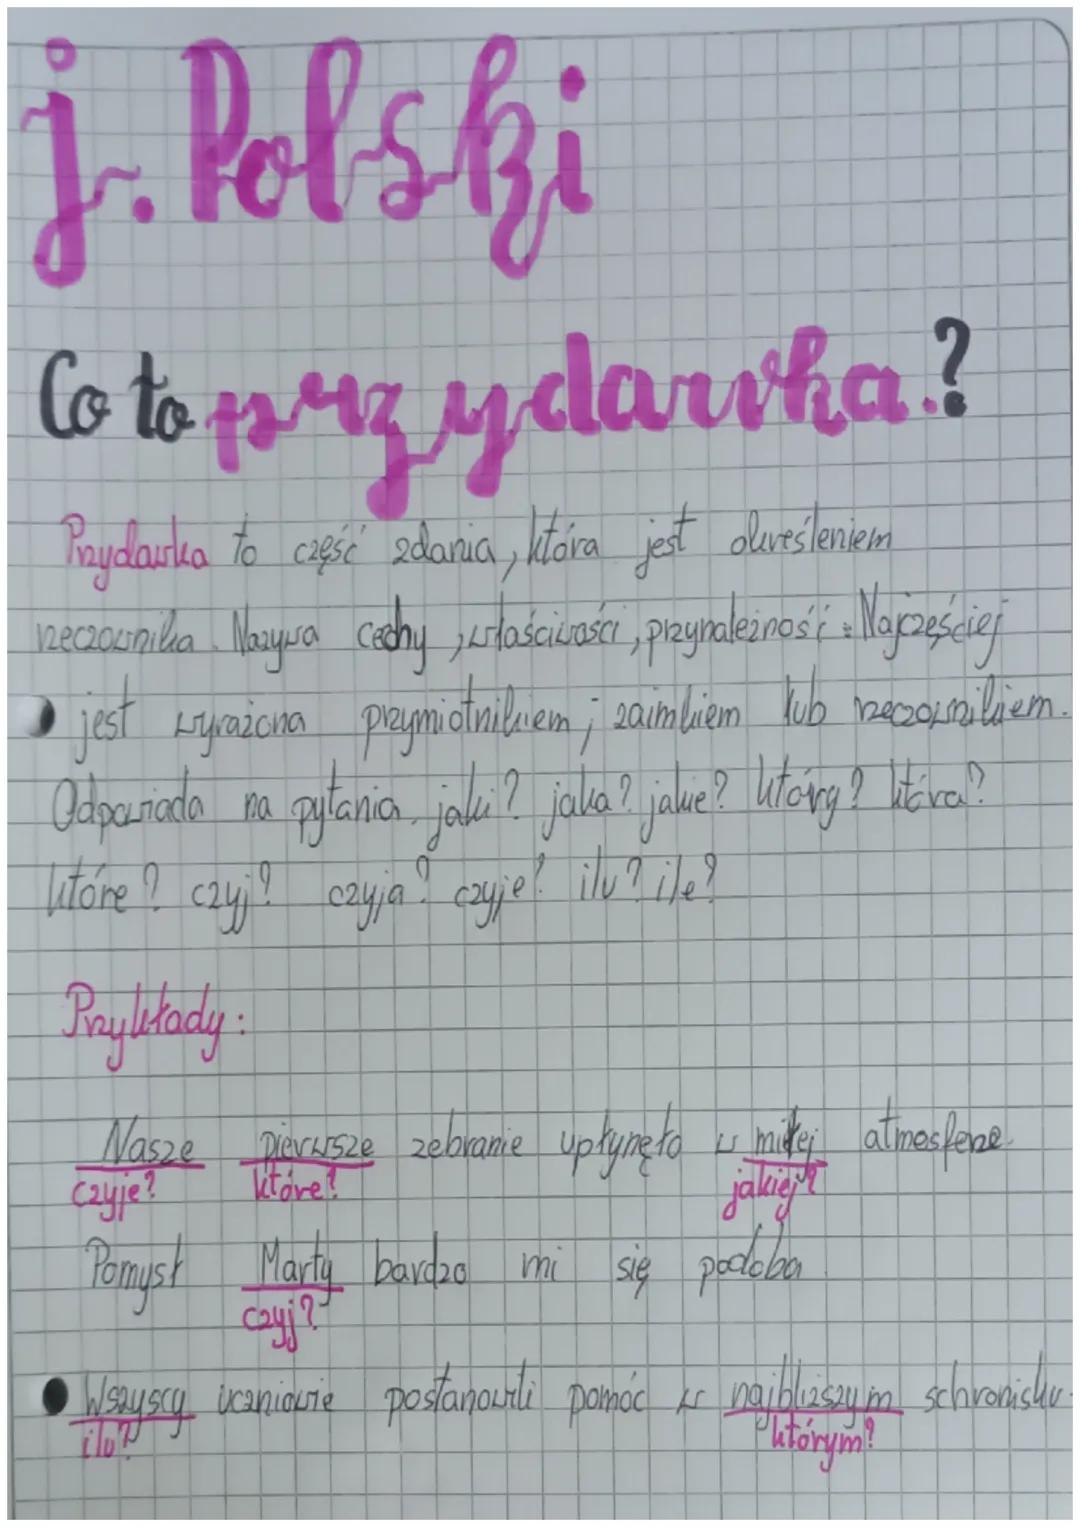 j. Polski
Co to przydawka.?
Przydawka to część zdania, która jest określeniem
rzeczownika. Nazywa cechy, właściwości, przynależność. Najczęściej
jest wyrażona przymiotnikiem, zaimkiem lub rzeczownikiem.
Odpowiada na pytania, jaki? jaka? jakie? który? która?
które? czyj? czyja? czyje? ilu? ile?
Przykłady:
Nasze pierwsze zebranie upłynęło w miłej atmosferze.
czyje? które? jakiej?
Pomysł Marty bardzo mi się podoba.
czyj?
Wszyscy uczniowie postanowili pomóc w najbliższym schronisku.
ilu? którym?